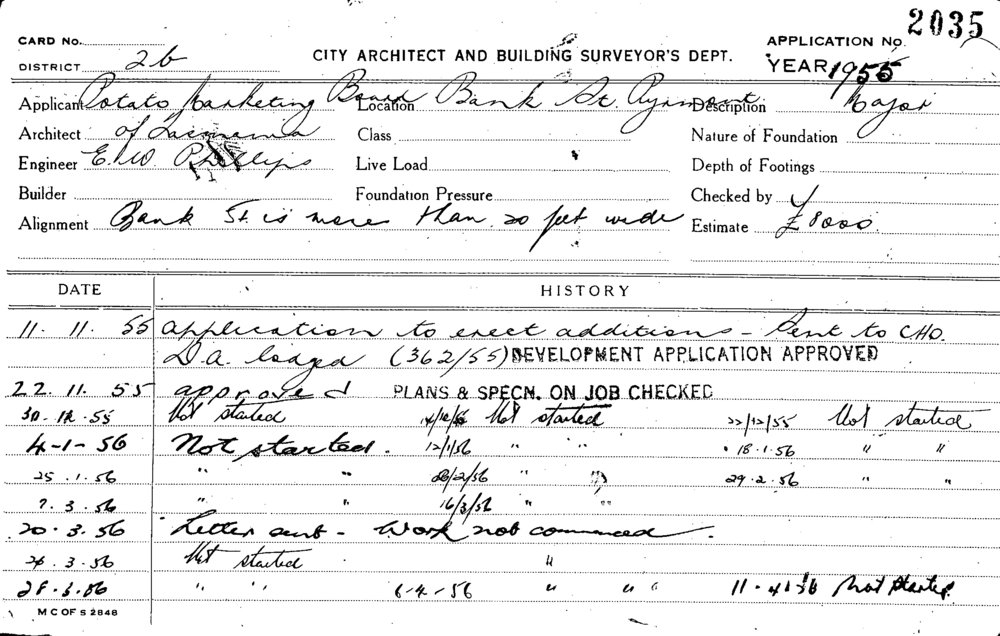 2035
CARD No. CITY ARCHITECT AND BUILDING SURVEYOR'S DEPT. APPLICATION No.
DISTRICT 2b YEAR 1955
Applicant Potato Marketing Board Location Bank St. Pyrmont Description Major
Architect of Tasmania Class Nature of Foundation
Engineer E. W Phillips Live Load Depth of Footings
Builder Foundation Pressure Checked by
Alignment Bank St. is more than 20 feet wide Estimate £8000.
DATE HISTORY
11. 11. 55 Application to erect additions - Sent to C.H.O.
D.A. lodged (362/55) DEVELOPMENT APPLICATION APPROVED
22. 11. 55 approved PLANS & SPECN. ON JOB CHECKED
Not started Not started 22/12/55 Not started
4-1-56 Not started. 12/1/56 " " 18.1.56 " "
25.1.56 " " 2/56 " " 29.2.56 " "
7.3.56 " " 16/3/56 " "
20.3.56 Letter sent - Work not commenced.
3.56 Not started "
28.3.56 " " " 6-4-56 " " " 11.4.56 Not Started.
M C OF S 2848